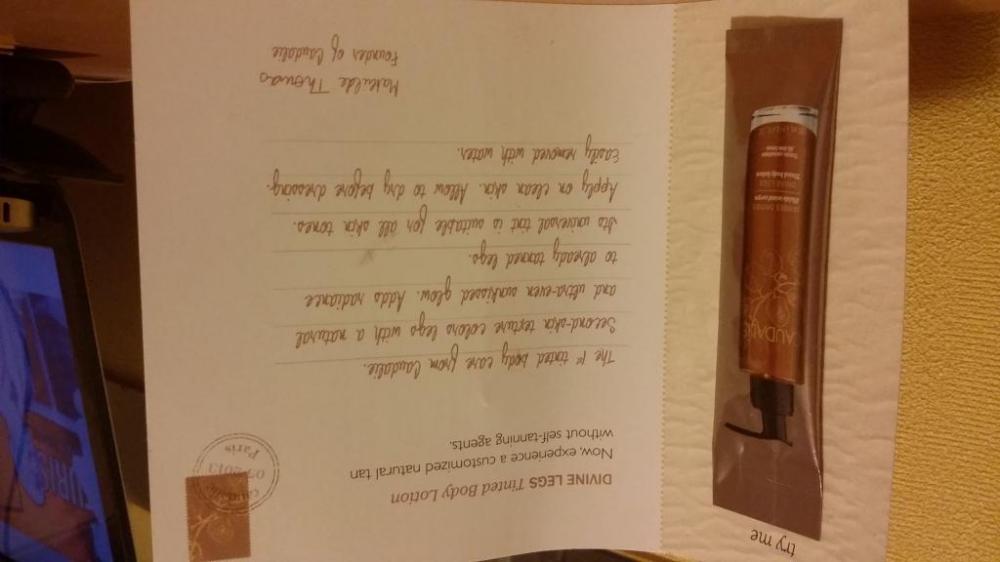 DIVINE LEGS Tinted Body Lotion
Now, experience a customized natural tan
without self-tanning agents.
The 1st tinted body care from Caudalie.
Second-skin texture colors legs with a natural
and ultra-even sunkissed glow. Adds radiance
to already tanned legs.
Its universal tint is suitable for all skin tones.
Apply on clean skin. Allow to dry before dressing.
Easily removed with water.
Mathilde Thomas
Founder of Caudalie
Paris
try me
CAUDALIE
DIVINE LEGS
Tinted body lotion